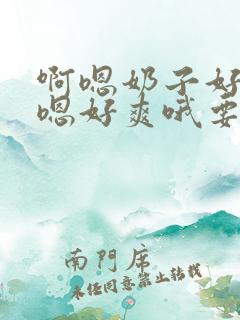 啊嗯奶子好
嗯好爽哦要
南門席
未经同意禁止转载